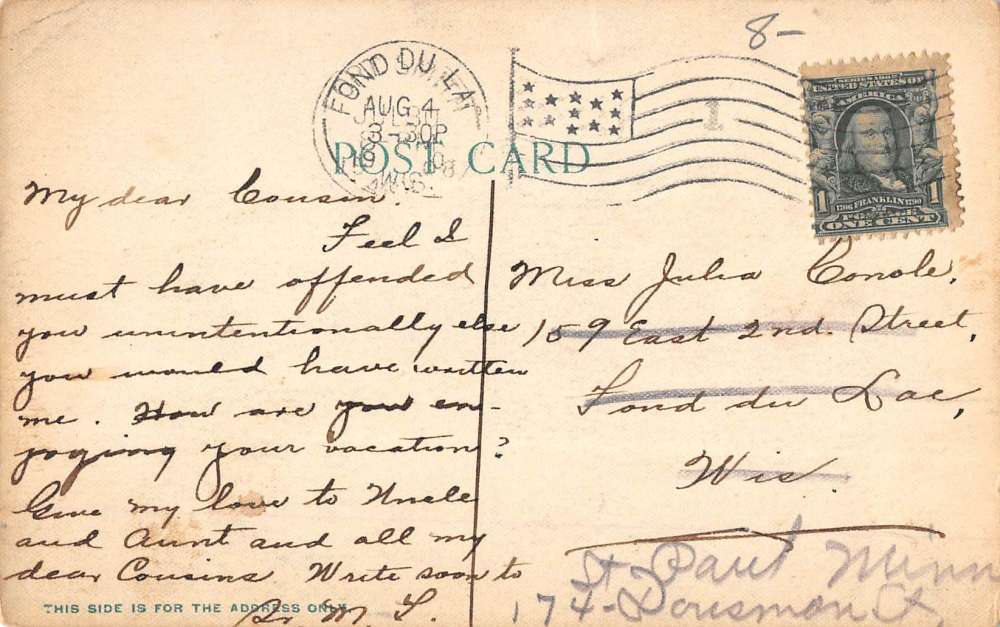 8-
FOND DU LA
AUG 4
3-30P
WIS.
1
SERIES 1902
UNITED STATES OF
AMERICA
1
1
1706 FRANKLIN 1790
POSTAGE
ONE CENT
POST CARD
My dear Cousin.
Feel I
must have offended
you unintentionally else
you would have written
me. How are you en-
joying your vacation?
Give my love to Uncle
and Aunt and all my
dear Cousins. Write soon to
Sr. M. L.
Miss Julia Conole,
159 East 2nd. Street,
Fond du Lac,
Wis.
St Paul Minn
174- Dousman St,
THIS SIDE IS FOR THE ADDRESS ONLY.